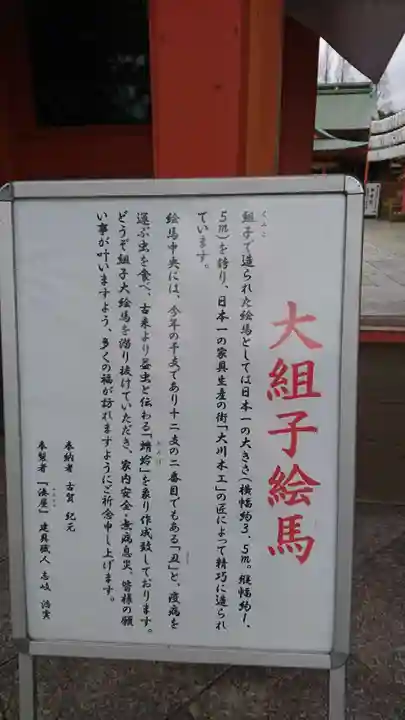 大組子絵馬
くみこ
組子で造られた絵馬としては日本一の大きさ(横幅約3.5m。縦幅約1.
5m)を誇り、日本一の家具生産の街「大川木工」の匠によって精巧に造られ
ています。
絵馬中央には、今年の干支であり十二支の二番目でもある「丑」と、疫病を
運ぶ虫を食べ、古来より益虫と伝わる「蜻蛉」を象り作成致しております。
どうぞ組子大絵馬を潜り抜けていただき、家内安全・無病息災、皆様の願
い事が叶いますよう、多くの福が訪れますようにご祈念申し上げます。
奉納者 古賀 紀元
奉製者 「湊屋」建具職人 志岐 浩実